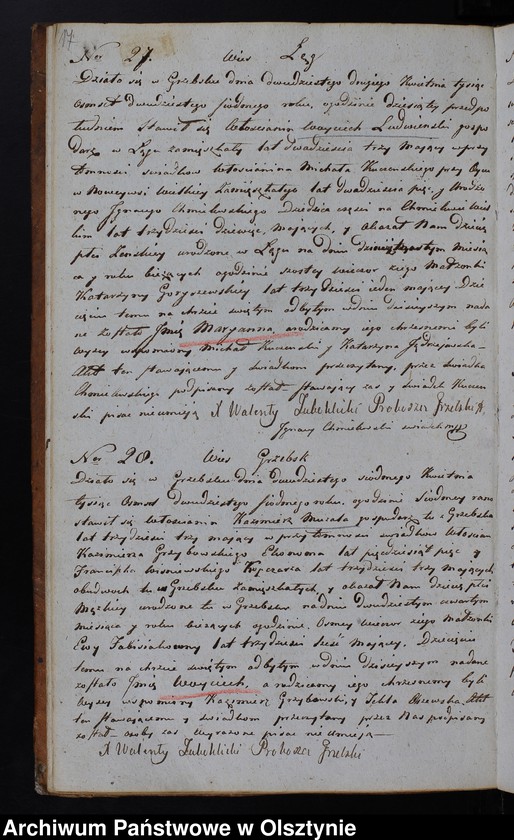 17.
No 27. Wieś Łąg
Działo się w Grzebsku dnia dwudziestego drugiego Kwietnia tysiąc
ośmset dwudziestego siodmego roku, ogodzinie dziesiąty przedpo
łudniem Stawił się Włościanin Woyciech Ludwinski gospo
darz w Łęgu zamięszkały lat dwadzieścia trzy Mający w przy
tomnosci swiadkow Włoscianina Michała Kucenskiego przy Oycu
w Nowcywsi Wielkiey Zamięszkałego lat dwadziescia pięc, y Urodzo
nego Jgnacego Chmielewskiego Dziedzica częsci na Chmielewie Wiel
kim lat trzydziesci dziewięc, maiących, y okazał Nam dziecię
płci Zenskiey urodzone w Łęgu na dniu dziewiętnastym miesią
ca y roku bieżących ogodzinie szostey wieczor z iego Małżonki
Katarzyny Goryszewskiey lat trzydziesci ieden maiący. Dzie
cięciu temu na chrzcie swiętym odbytym w dniu dzisieyszym nada
ne zostało Jmię Maryanna, a rodzicami iego chrzesnemi byli
wyzey wspomniony Michał Kucenski y Katarzyna Jędrzejewska
Akt ten stawaiącemu y swiadkom przeczytany, przez swiadka
Chmielewskiego podpisany został stawaiący zas y swiadek Kucen
ski pisac nieumieią X Walenty Lubelicki Proboszcz Grzebski
Jgnacy Chmielewski swiadek
No 28. Wieś Grzebsk
Działo się w Grzebsku dnia dwudziestego siodmego Kwietnia
tysiąc Osmset dwudziestego siodmego roku, ogodzinie siodmey rano
stawił się Włoscianin Kazimierz Muzała gospodarz tu z Grzebska
lat trzydziesci trzy maiący w przytomnosci swiadkow Włoscian
Kazimierza Grzybowskiego lat pięcdziesiąt pięc y
Franciszka Wisniewskiego lat trzydziesci trzy maiących,
obudwoch tu w Grzebsku Zamięszkałych, y okazał Nam dziecię płci
Męzkiey urodzone tu w Grzebsku na dniu dwudziestym czwartym
miesiąca y roku bieżących ogodzinie Osmey wieczor z iego Małżonki
Ewy lat trzydziesci szesć maiący. Dziecięciu
temu na chrzcie swiętym odbytym w dniu dzisieyszym nadane
zostało Jmię Woyciech, a rodzicami iego chrzesnemi byli
wyzey wspomniony Kazimierz Grzybowski, y Tekla Olszewska, Akt
ten stawaiącemu y swiadkom przeczytany przez Nas podpisany
został osoby zas wyrazone pisac nieumieią
X Walenty Lubelicki Proboszcz Grzebski
Archiwum Państwowe w Olsztynie